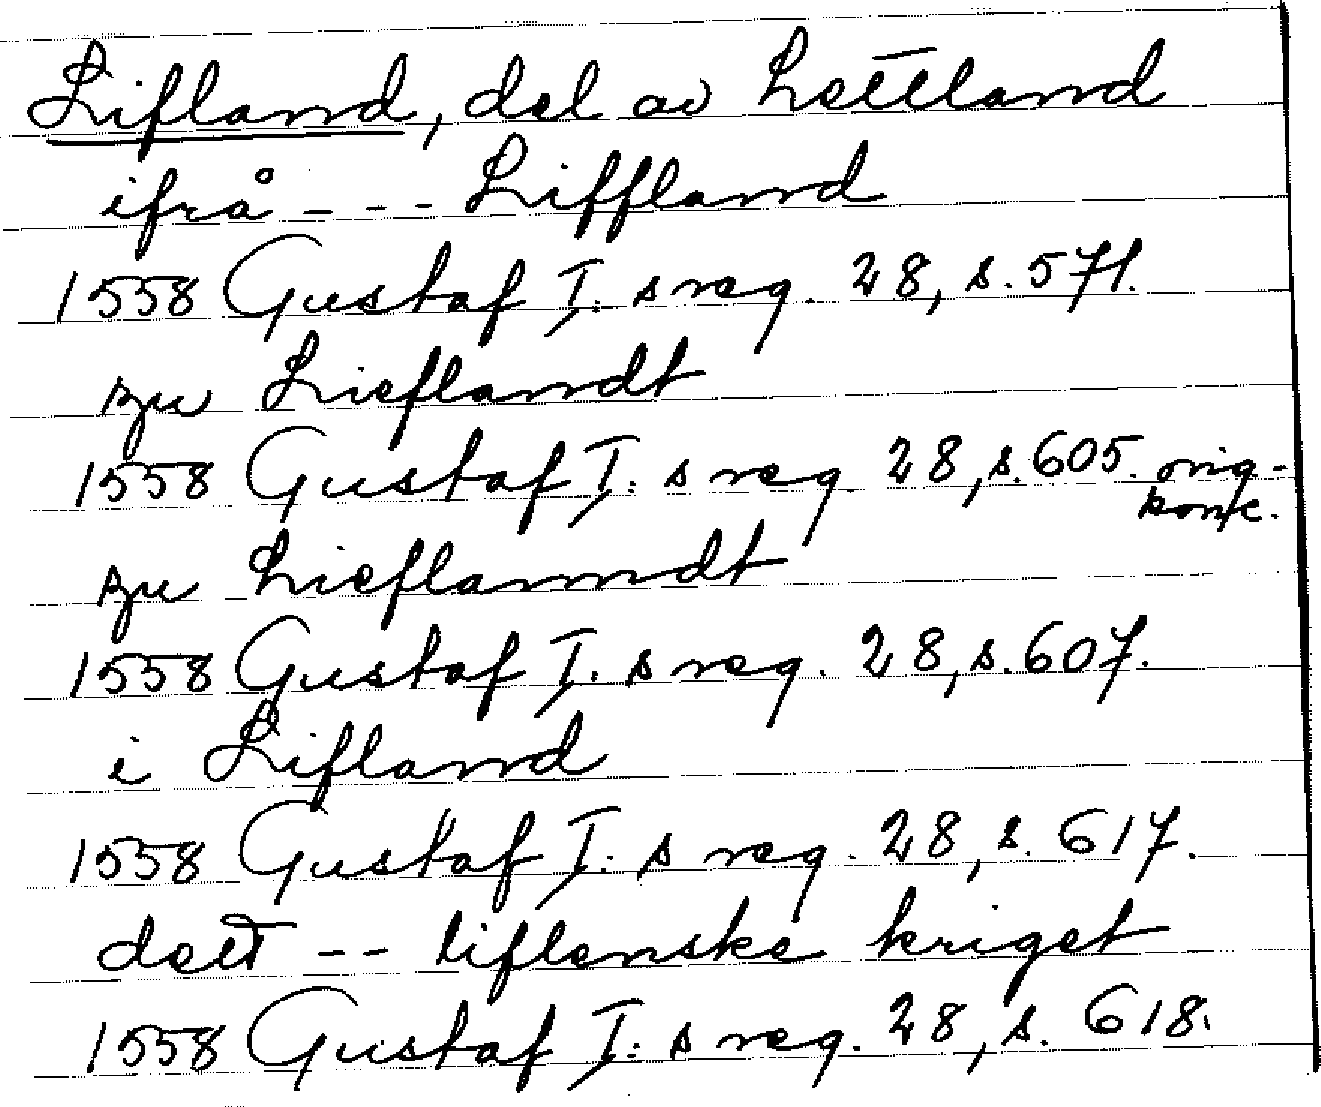 Lifland, del av Lettland
ifrå --- Liffland
1558 Gustaf I:s reg. 28, s. 571.
zu Lieflandt
1558 Gustaf I:s reg. 28, s. 605. orig.-
konc.
zu Lieflanndt
1558 Gustaf I:s reg. 28, s. 607.
i Lifland
1558 Gustaf I:s reg. 28, s. 617.
dett -- liflenske kriget
1558 Gustaf I:s reg. 28, s. 618.